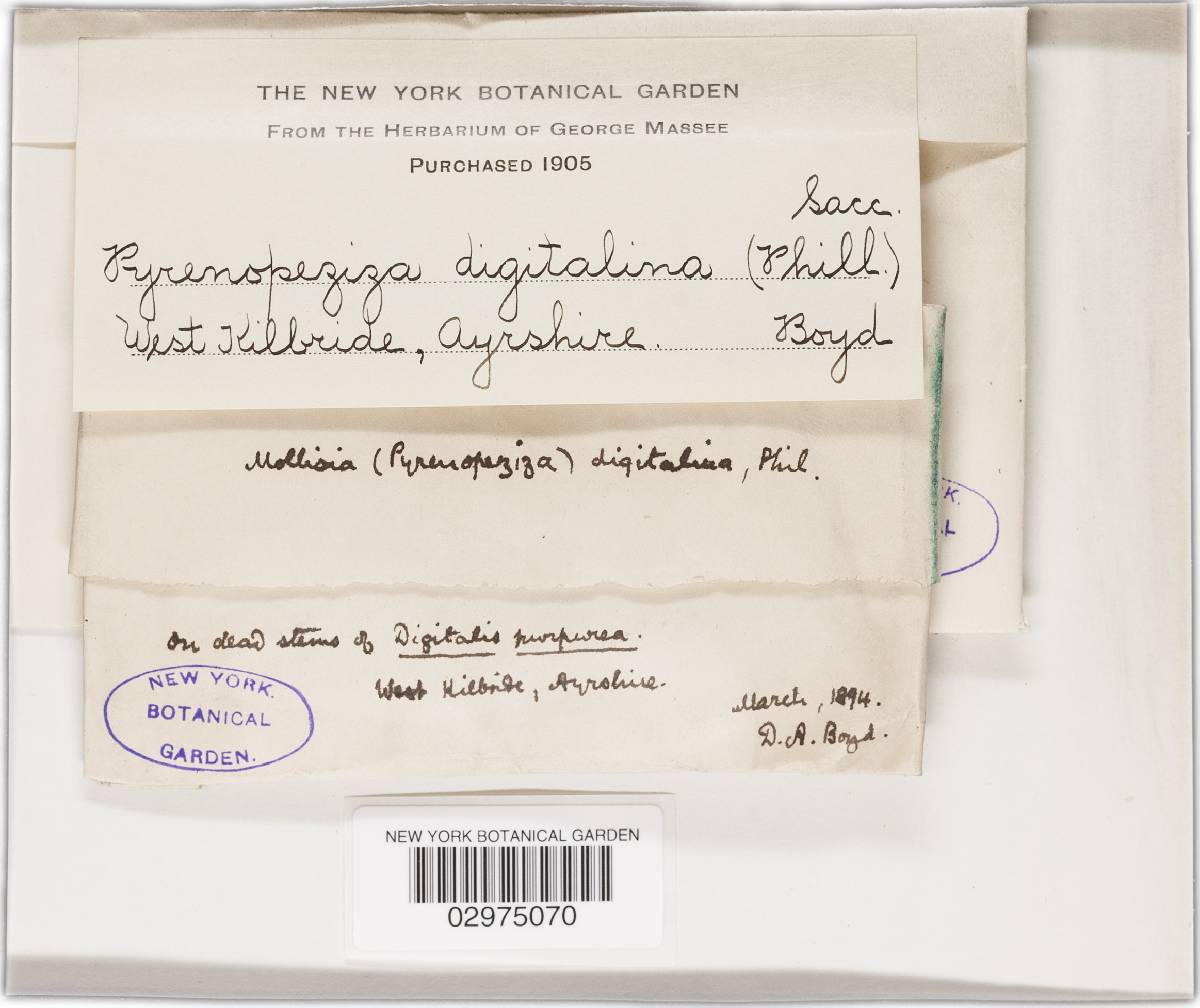 THE NEW YORK BOTANICAL GARDEN
FROM THE HERBARIUM OF GEORGE MASSEE
PURCHASED 1905
Sacc.
Pyrenopeziza digitalina (Phill.)
West Kilbride, Ayrshire. Boyd
Mollisia (Pyrenopeziza) digitalina, Phil.
K.
L
On dead stems of Digitalis purpurea.
West Kilbride, Ayrshire.
March, 1894.
D. A. Boyd.
NEW YORK.
BOTANICAL
GARDEN.
NEW YORK BOTANICAL GARDEN
02975070